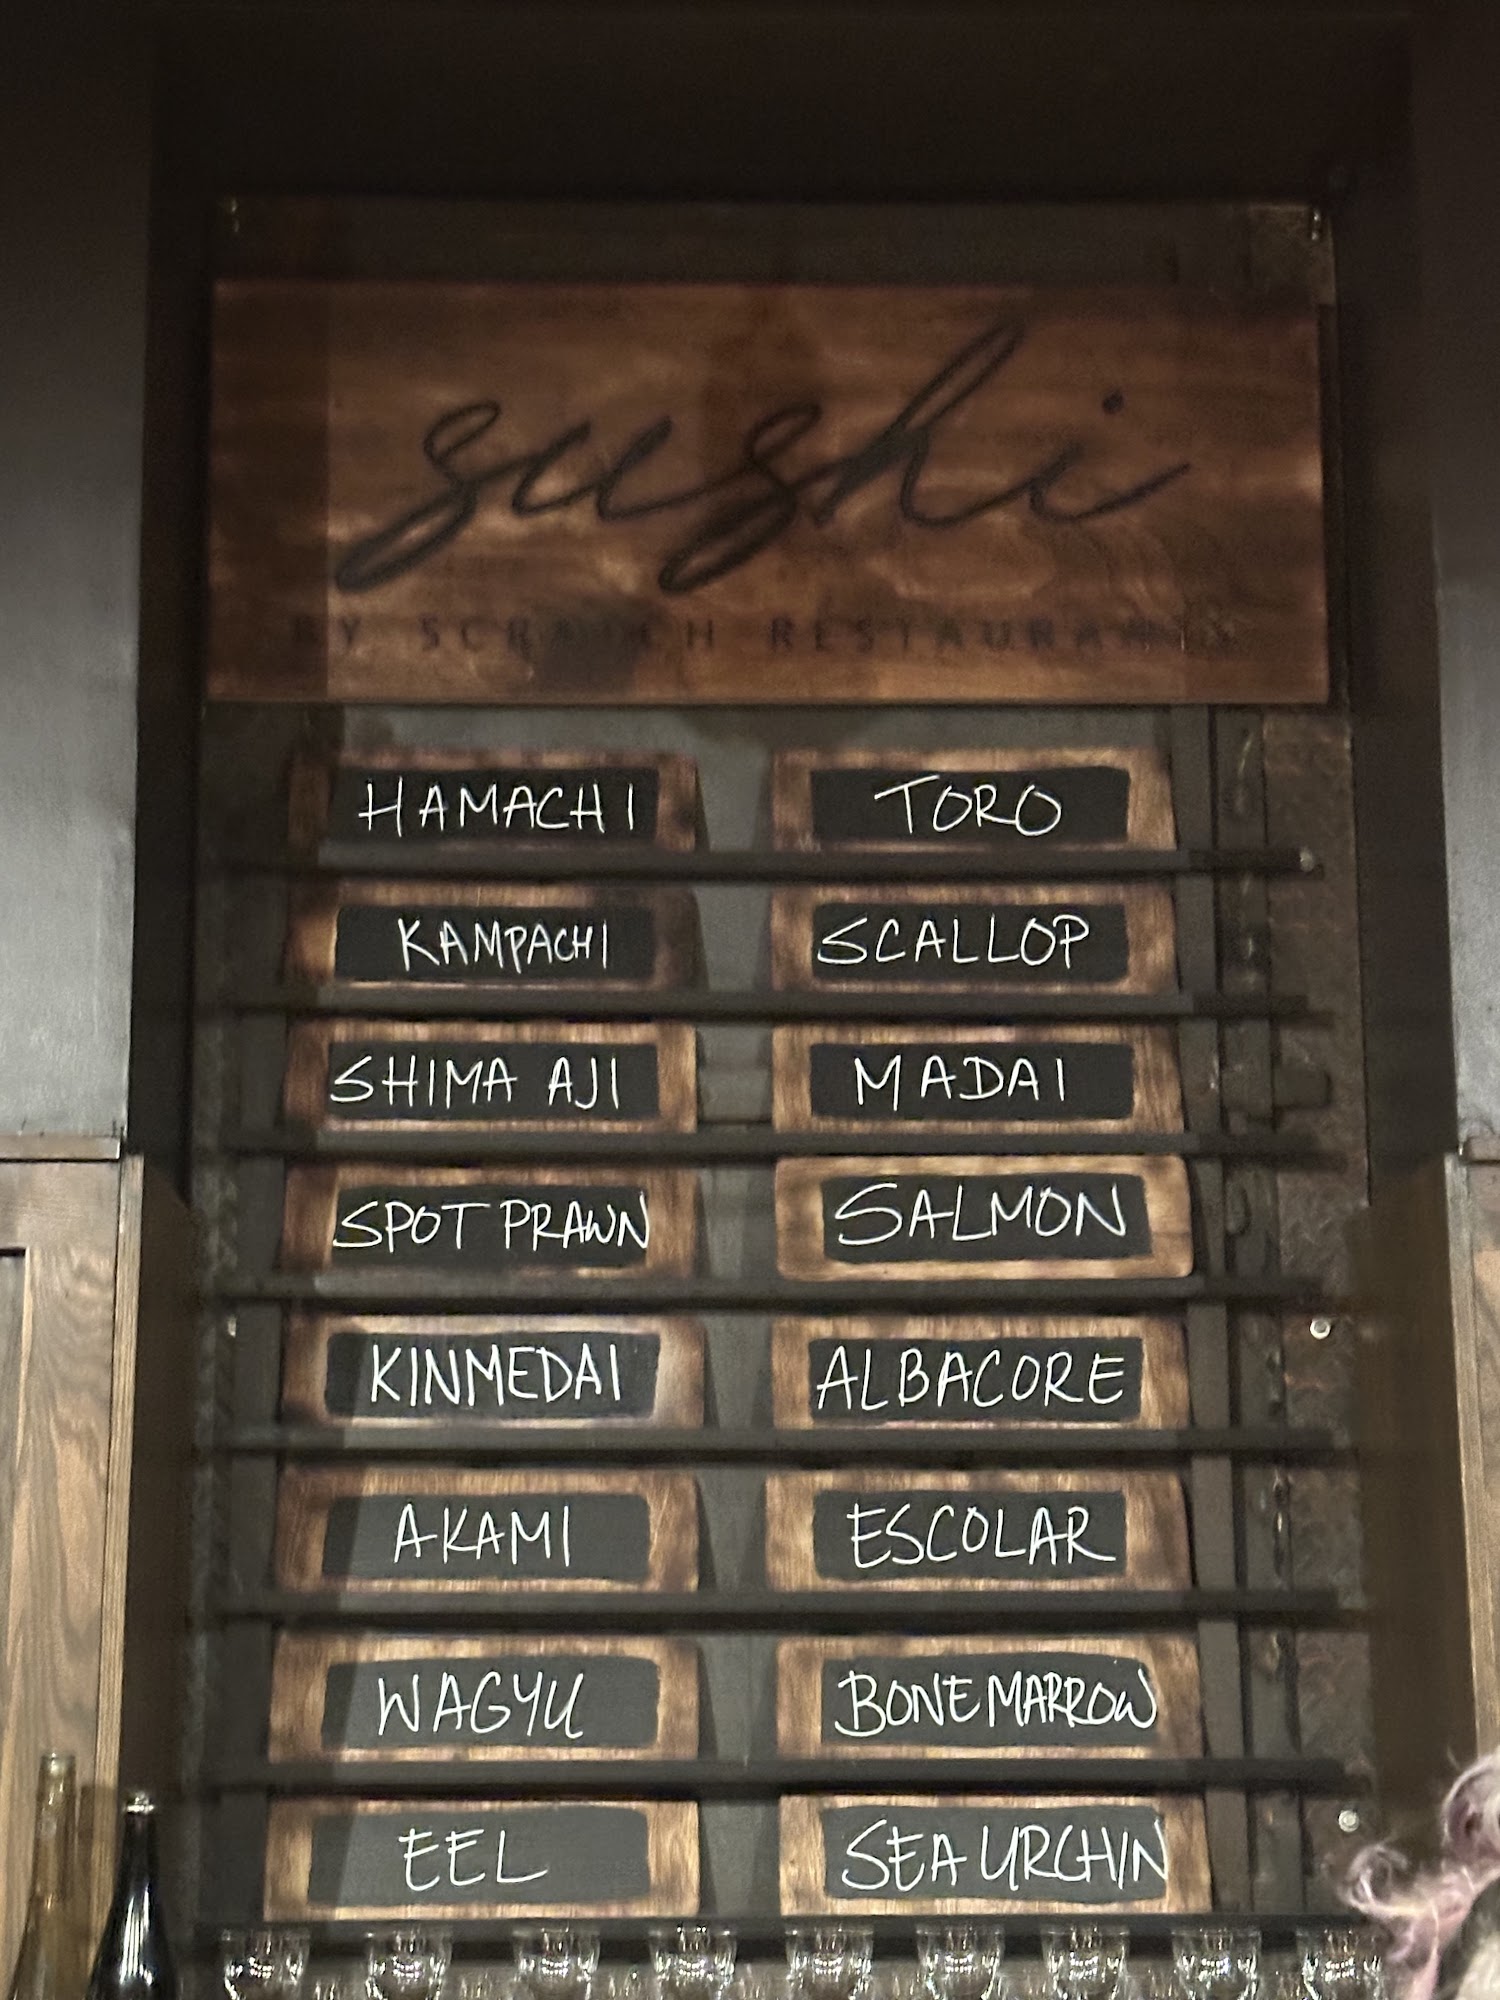 sushi
BY SCRATCH RESTAURANTS
HAMACHI
TORO
KAMPACHI
SCALLOP
SHIMA AJI
MADAI
SPOT PRAWN
SALMON
KINMEDAI
ALBACORE
AKAMI
ESCOLAR
WAGYU
BONE MARROW
EEL
SEA URCHIN